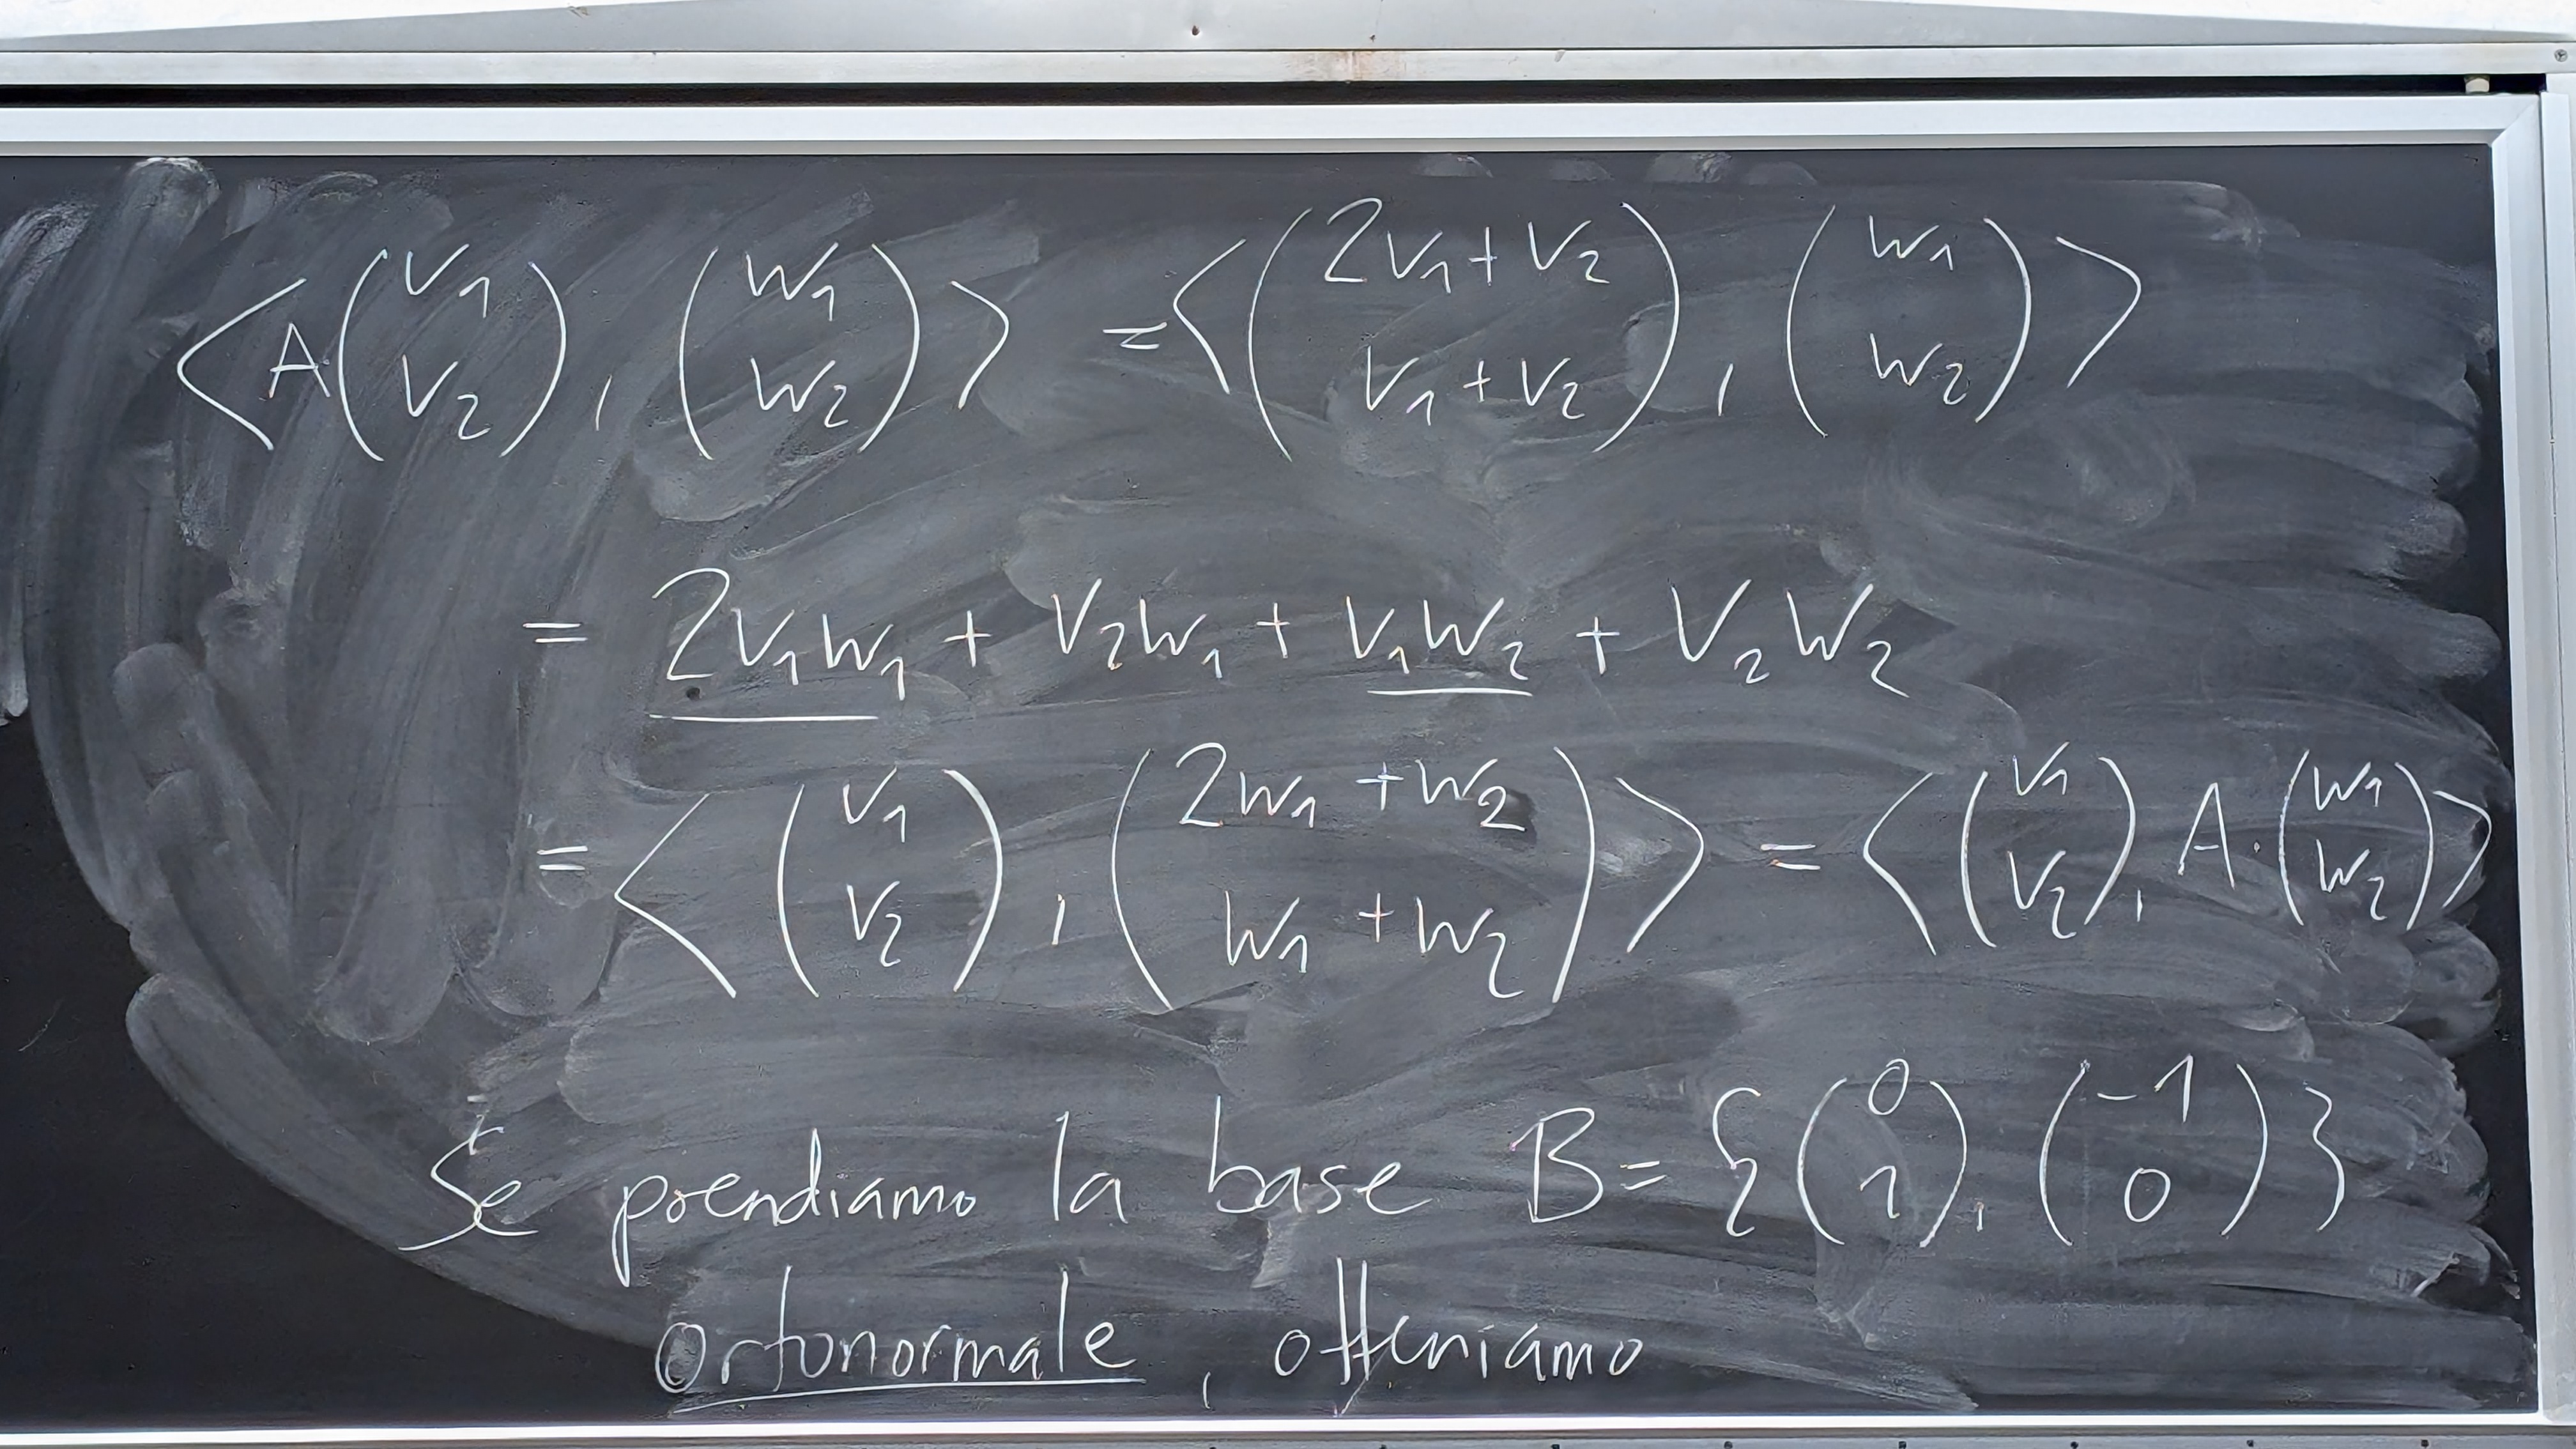 ⟨A·(v₁ v₂), (w₁ w₂)⟩ = ⟨(2v₁+v₂ v₁+v₂), (w₁ w₂)⟩
= 2v₁w₁ + v₂w₁ + v₁w₂ + v₂w₂
= ⟨(v₁ v₂), (2w₁+w₂ w₁+w₂)⟩ = ⟨(v₁ v₂), A·(w₁ w₂)⟩
Se prendiamo la base B = {(0 1), (-1 0)}
ortonormale, otteniamo